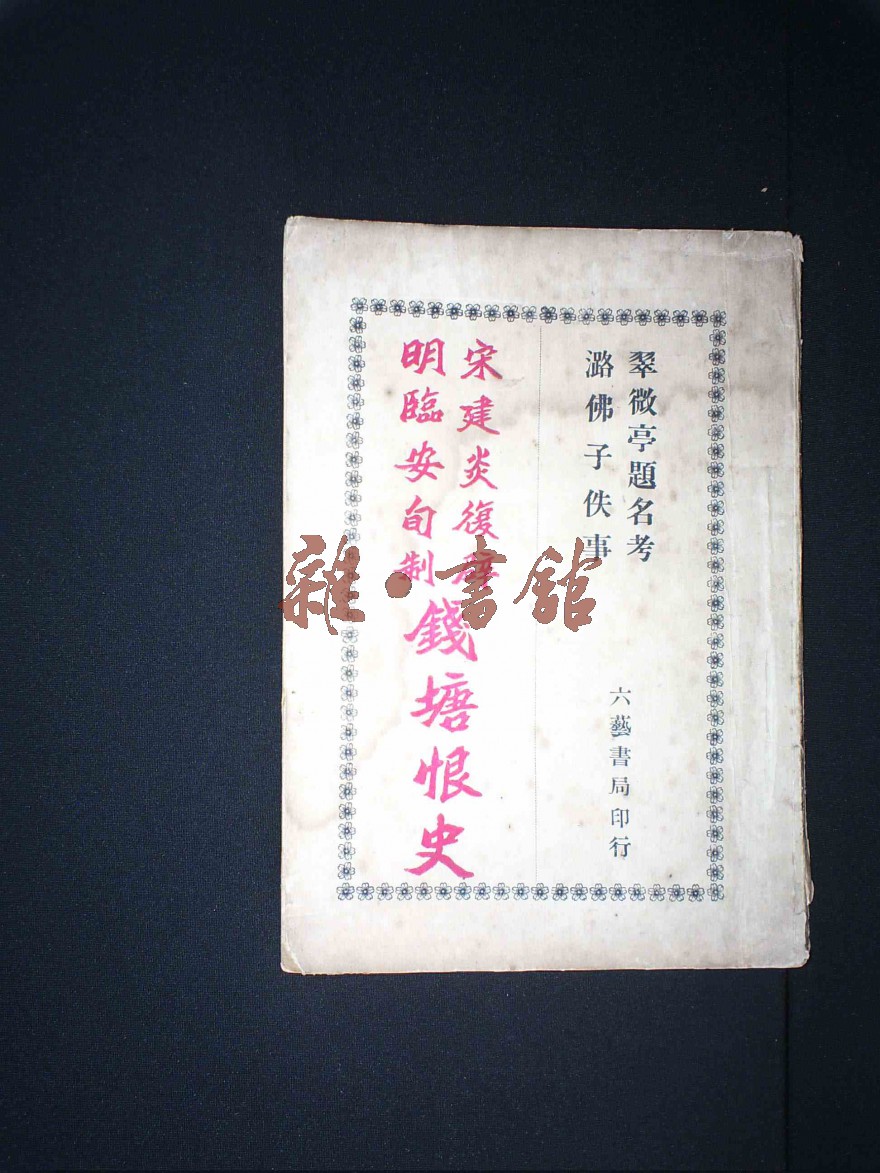 翠微亭題名考
潞佛子佚事
六藝書局印行
宋建炎復辟
明臨安旬制
錢塘恨史
雜·書館